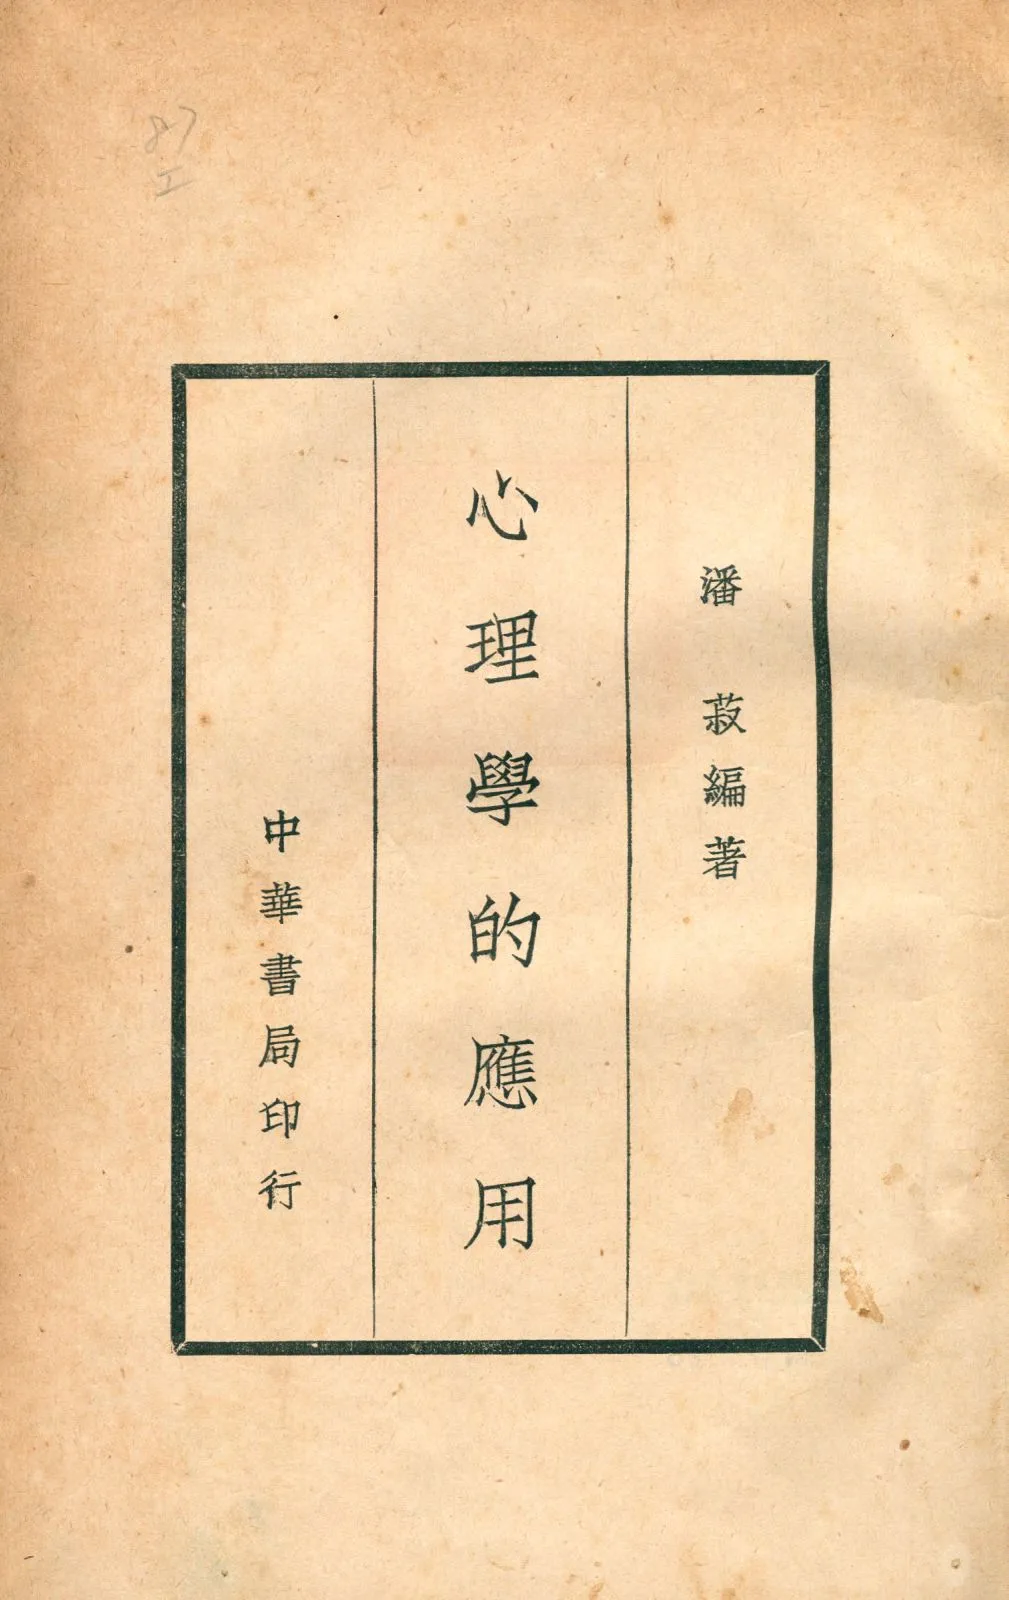 潘菽編著
心理學的應用
中華書局印行
87
工